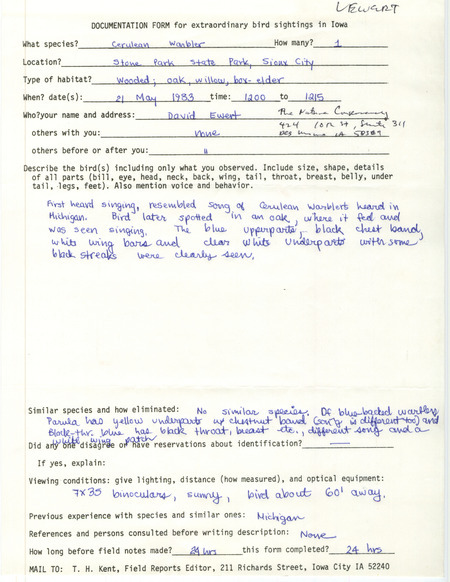 L EWERT
DOCUMENTATION FORM for extraordinary bird sightings in Iowa
What species? Cerulean Warbler How many? 1
Location? Stone Park State Park, Sioux City
Type of habitat? Wooded; oak, willow, box-elder
When? date(s): 21 May 1983 time: 1200 to 1215
Who? your name and address: David Ewert The Nature Conservancy
424 10th St, Suite 311
others with you: none Des Moines IA 50309
others before or after you: "
Describe the bird(s) including only what you observed. Include size, shape, details
of all parts (bill, eye, head, neck, back, wing, tail, throat, breast, belly, under
tail, legs, feet). Also mention voice and behavior.
First heard singing, resembled song of Cerulean Warblers heard in
Michigan. Bird later spotted in an oak, where it fed and
was seen singing. The blue upperparts, black chest band,
white wing bars and clear white underparts with some
black streaks were clearly seen.
Similar species and how eliminated: No similar species. Of blue-backed warblers
Parula has yellow underparts w/ chestnut band (song is different too) and
Black-thr. blue has black throat, breast etc., different song and a
white wing patch
Did any one disagree or have reservations about identification? —
If yes, explain:
Viewing conditions: give lighting, distance (how measured), and optical equipment:
7x35 binoculars, sunny, bird about 60' away.
Previous experience with species and similar ones: Michigan
References and persons consulted before writing description: None
How long before field notes made? 24 hrs this form completed? 24 hrs
MAIL TO: T. H. Kent, Field Reports Editor, 211 Richards Street, Iowa City IA 52240